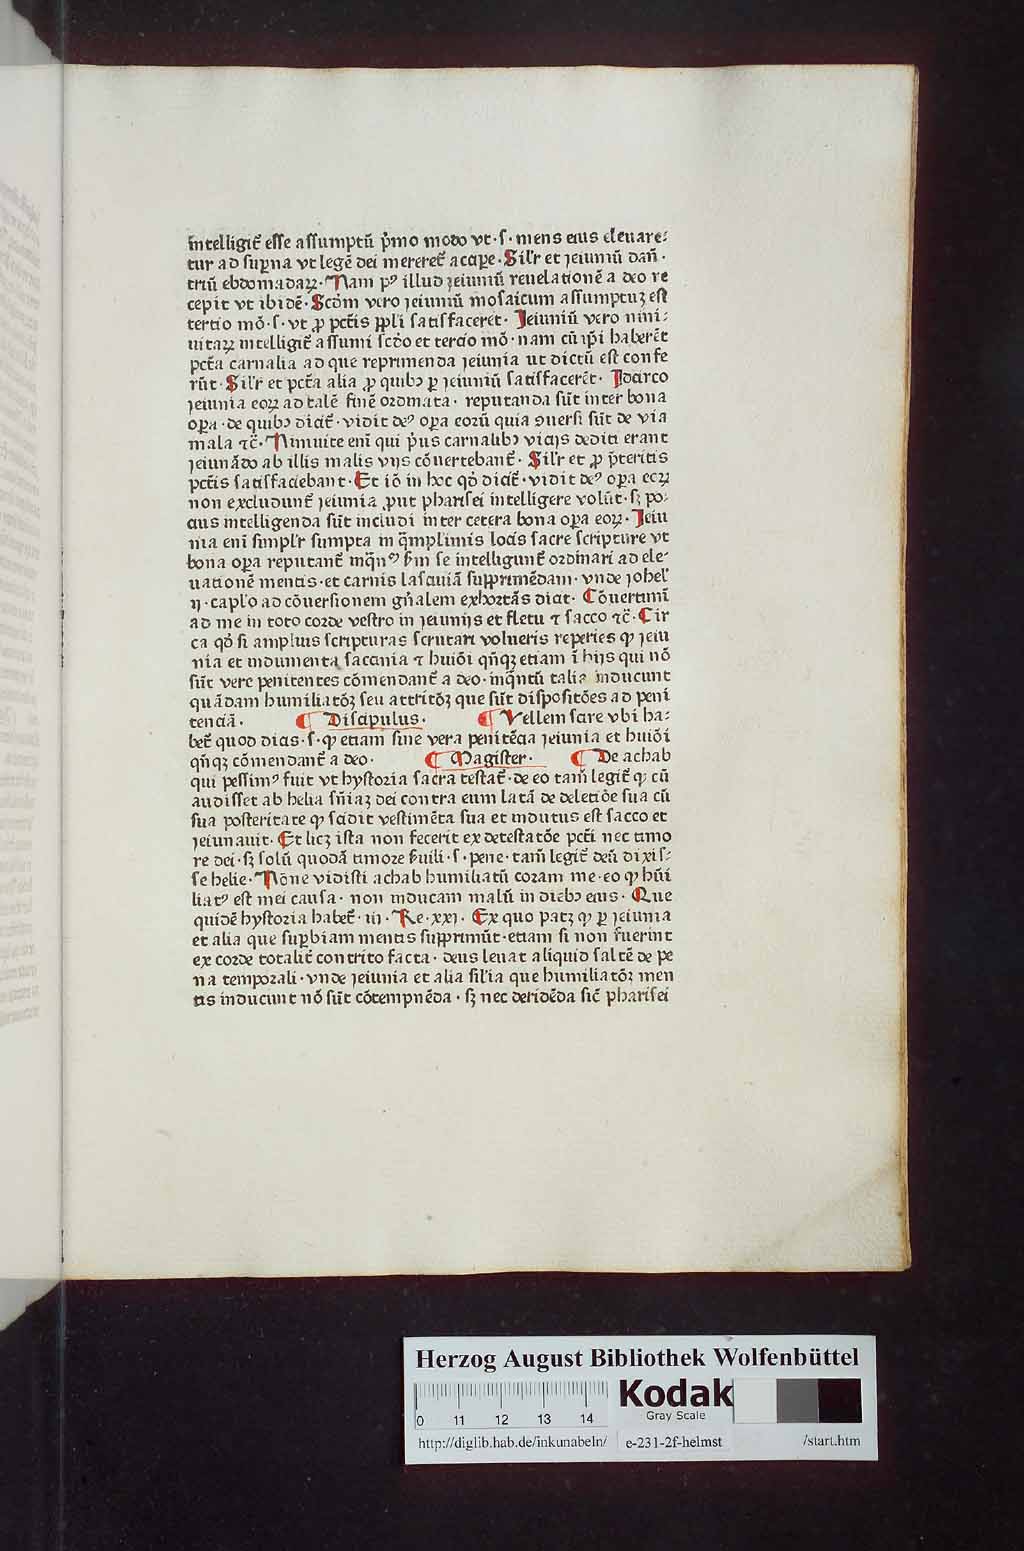 intelligit̄ esse assumptū p̄mo modo vt·s· mens eius eleuare⸗
tur ad sup̲na vt legē dei mereret̄ acip̲e·Silr̄ et jeiuniū dan̄·
triū ebdomadaꝝ·Nam pꝰ illud jeiuniū reuelationē a deo re
cepit vt ibidē·Scd̄m vero jeiuniū mosaicum assumptuꝫ est
tertio mō·s·vt ꝓ pctīs ppl̄i satisfacerēt· Jeiuniū vero nini⸗
uitaꝝ intelligit̄ assumi scd̄o et tercio mō·nam cū ip̄i haberēt
pctā carnalia ad que reprimenda jeiunia ut dictū est confe
rūt·Silr̄ et pctā alia ꝓ quibꝫ ꝑ jeiuniū satisfacerēt· Jdcirco
jeiunia eoꝝ ad talē finē ordinata· reputanda sūt inter bona
op̲a·de quibꝫ dicit̄·vidit deꝰ op̲a eorū quia ꝯuersi sūt de via
mala ⁊c̄·Niniuite enī qui p̄us carnalibꝫ vicijs dediti erant
jeiunādo ab illis malis vijs cōuertebant̄· Silr̄ et ꝓ p̄teritis
pctīs satisfaciebant·Et iō in hoc qd̄ dicit̄·vidit deꝰ op̲a eoꝝ
non excludunt̄ jeiunia ꝓut pharisei intelligere volūt·sꝫ po⸗
cius intelligenda sūt includi inter cetera bona op̲a eoꝝ·Jeiu
nia enī simpl̄r sumpta in q̄mplimis locis sacre scripture vt
bona op̲a reputant̄ inq̄nꝰ ẜm se intelligunt̄ ordinari ad ele⸗
uationē mentis·et carnis lasciuiā supprimēdam·vnde johel̄
ij·capl̄o ad cōuersionem gn̄alem exhortās dicit· Cōuertimī
ad me in toto corde vestro in jeiunijs et fletu ⁊ sacco ⁊c̄·Cir
ca qd̄ si amplius scripturas scrutari volueris reperies ꝙ jeiu
nia et indumenta saccinia ⁊ huiōi qn̄qꝫ etiam ī hijs qui nō
sūt vere penitentes cōmendant̄ a deo·inq̄ntū talia inducunt
quādam humiliatōꝫ seu attritōꝫ que sūt dispositōes ad peni
tenciā· ¶ Discipulus· ¶ Vellem scire vbi ha⸗
bet̄ quod dicis·s·ꝙ etiam sine vera penitēcia jeiunia et huiōi
qn̄qꝫ cōmendant̄ a deo· ¶ Magister· ¶ De achab
qui pessimꝰ fuit vt hystoria sacra testat̄·de eo tam̄ legit̄ ꝙ cū
audisset ab helia sn̄iaꝫ dei contra eum latā de deletiōe sua cū
sua posteritate ꝙ scidit vestimēta sua et indutus est sacco et
jeiunauit·Et licꝫ ista non fecerit ex detestatōe pctī nec timo
re dei·sꝫ solū quodā timore ẜuili·s·pene·tam̄ legit̄ deū dixis⸗
se helie·Nōne vidisti achab humiliatū coram me·eo ꝙ hūi
liatꝰ est mei causa·non inducam malū in diebꝫ eius·Que
quidē hystoria habet̄·iij·Re·xxi· Ex quo patꝫ ꝙ ꝑ jeiunia
et alia que sup̲biam mentis supprimūt·etiam si non fuerint
ex corde totalit̄ contrito facta·deus leuat aliquid saltē de pe
na temporali·vnde jeiunia et alia sil̄ia que humiliatōꝫ men
tis inducunt nō sūt cōtempnēda·sꝫ nec deridēda sic̄ pharisei
Herzog August Bibliothek Wolfenbüttel
0 11 12 13 14
Kodak
Gray Scale
http://diglib.hab.de/inkunabeln/ e-231-2f-helmst /start.htm